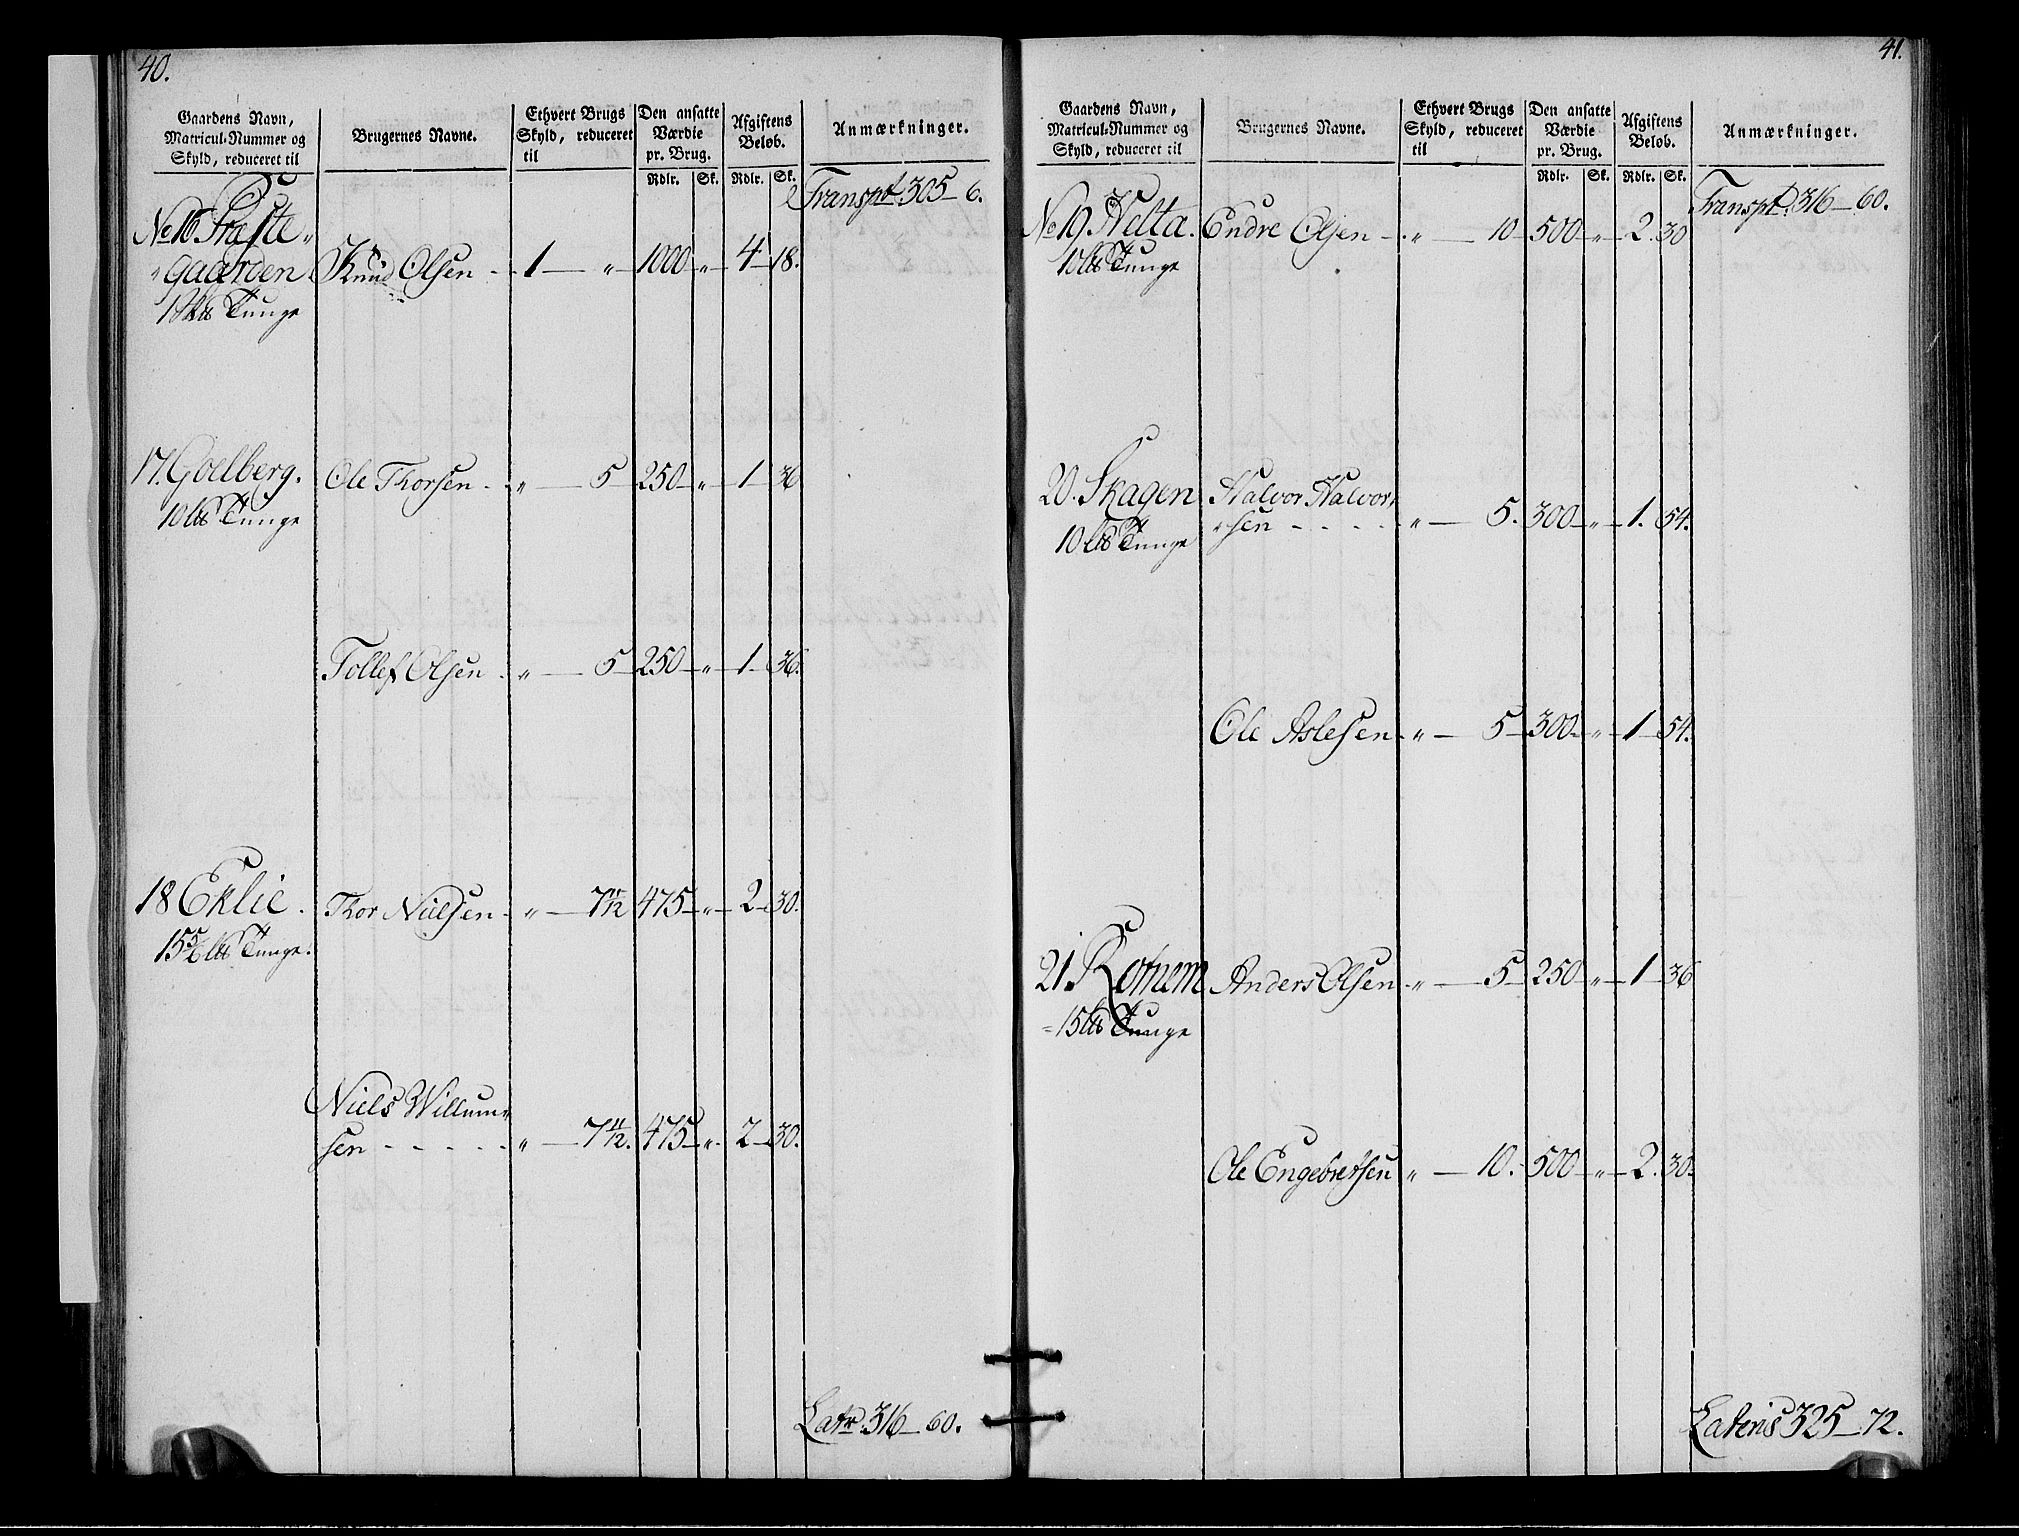 40.
Gaardens Navn, Matricul-Nummer og Skyld, reduceret til
Brugernes Navne.
Ethvert Brugs Skyld, reduceret til
Den ansatte Værdie pr. Brug.
Afgiftens Beløb.
Anmærkninger.
Rdlr. Sk. Rdlr. Sk.
Transpt. 305 - 6.
No 16 Præste„
„gaarden Knud Olsen - 1 - „ 1000 „ 4 - 18.
1 Tunge
17. Goelberg. Ole Thorsen - „ - 5 250 - „ - 1 36
10 lb Tunge
Tollef Olsen - „ - 5 250 - „ - 1 - 36.
18 Eklie. Thor Nielsen - „ - 7 11/12 475 - „ - 2 - 30.
15 5/6 lb Tunge.
Niels Willum„
sen - - - - - „ - 7 11/12. 475 - „ - 2 - 30.
Latr. 316 - 60.
41.
Gaardens Navn, Matricul-Nummer og Skyld, reduceret til
Brugernes Navne.
Ethvert Brugs Skyld, reduceret til
Den ansatte Værdie pr. Brug.
Afgiftens Beløb.
Anmærkninger.
Rdlr. Sk. Rdlr. Sk.
Transpt. 316 - 60.
No 19 Helta. Endre Olsen - „ - 10 - 500 - „ - 2. 30
10 lb Tunge
20. Skagen Halvor Halvor„
„sen - - - - „ - 5. 300 - „ - 1. 54.
10 lb Tunge
Ole Aslesen - „ - 5 - 300 - „ - 1 - 54.
21. Rotnem Anders Olsen - „ - 5 - 250 - „ - 1 - 36
= 15 lb Tunge
Ole Engebretsen „ - 10. - 500 - „ - 2. 30.
Lateris 325 - 72.